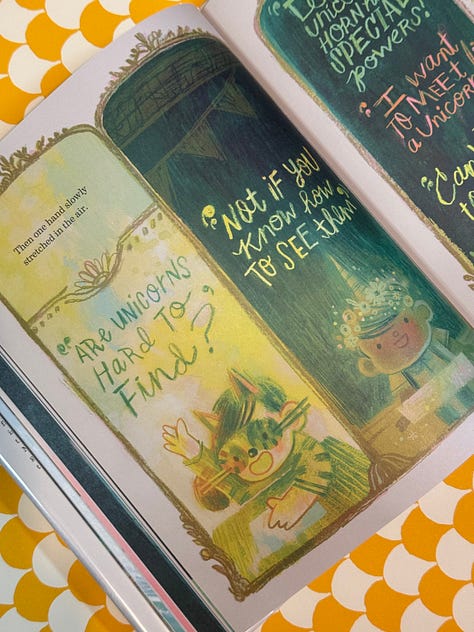 Then one hand slowly
stretched in the air.
"ARE UNICORNS
HARD TO
Find?"
"NOT if YOU
Know how
TO SEE them"
unicor
HORN
SPECIAL
powers!
"I want
TO MEET
a unicor
"Can